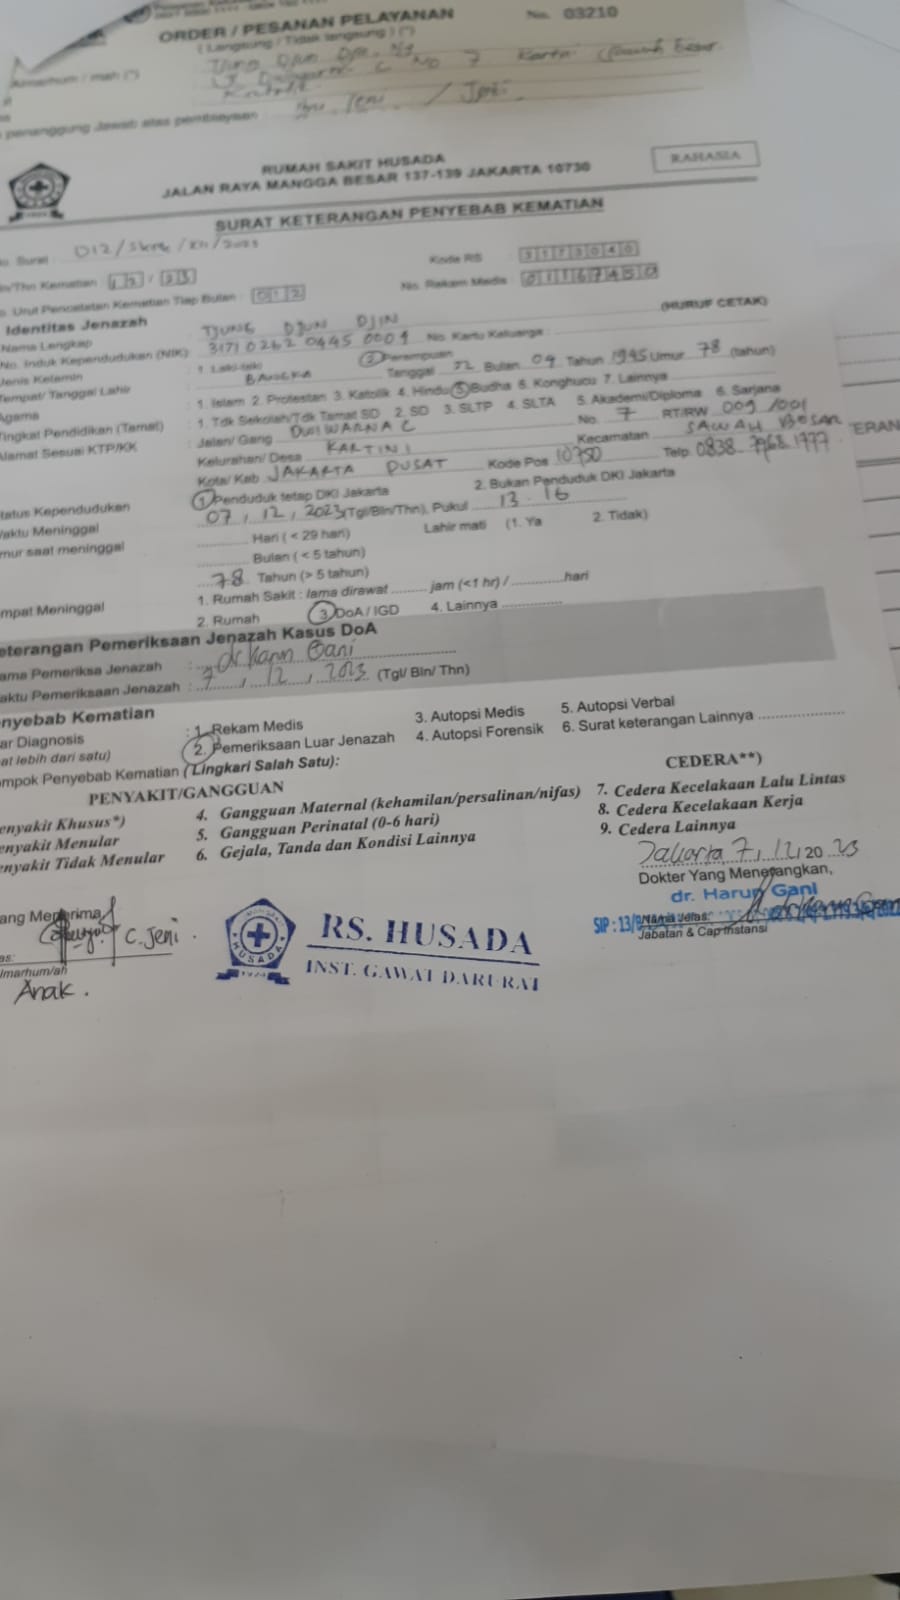 ORDER / PESANAN PELAYANAN
No. 03210
( Langsung / Tidak langsung ) (*)
mah (*)
C No 7
penanggung Jawab atas pembayaran : Ibu Jeni. /
RUMAH SAKIT HUSADA
JALAN RAYA MANGGA BESAR 137-139 JAKARTA 10730
RAHASIA
SURAT KETERANGAN PENYEBAB KEMATIAN
Surat : D12/ /XII/2023
Kode RS 3173040
/Thn Kematian : 12 / 23
No. Rekam Medis : 01167450
Urut Pencatatan Kematian Tiap Bulan : 012
(HURUF CETAK)
Identitas Jenazah
Nama Lengkap : TJUNG DJUN DJIN
No. Induk Kependudukan (NIK) : 3171026204450001 No. Kartu Keluarga :
Jenis Kelamin : 1. Laki-laki 2 Perempuan
Tempat/ Tanggal Lahir : BANGKA Tanggal 22 Bulan 04 Tahun 1945 Umur 78 (tahun)
Agama : 1. Islam 2. Protestan 3. Katolik 4. Hindu 5 Budha 6. Konghucu 7. Lainnya
Tingkat Pendidikan (Tamat) : 1. Tdk Sekolah/Tdk Tamat SD 2. SD 3. SLTP 4. SLTA 5. Akademi/Diploma 6. Sarjana
Alamat Sesuai KTP/KK : Jalan/ Gang DWIWARNA C No. 7 RT/RW 009 /001
Kelurahan/ Desa KARTINI Kecamatan SAWAH BESAR
Kota/ Kab JAKARTA PUSAT Kode Pos 10750 Telp 0838 7968 1777
Status Kependudukan 1 Penduduk tetap DKI Jakarta 2. Bukan Penduduk DKI Jakarta
Waktu Meninggal 07, 12, 2023 (Tgl/Bln/Thn), Pukul 13.16
mur saat meninggal Hari ( < 29 hari) Lahir mati (1. Ya 2. Tidak)
Bulan ( < 5 tahun)
78 Tahun (> 5 tahun)
mpat Meninggal 1. Rumah Sakit : lama dirawat jam (<1 hr) / hari
2. Rumah 3 DoA / IGD 4. Lainnya
eterangan Pemeriksaan Jenazah Kasus DoA
ama Pemeriksa Jenazah : dr Harun Gani
aktu Pemeriksaan Jenazah : 7, 12, 2023 (Tgl/ Bln/ Thn)
nyebab Kematian
ar Diagnosis : 1. Rekam Medis 3. Autopsi Medis 5. Autopsi Verbal
at lebih dari satu) 2. Pemeriksaan Luar Jenazah 4. Autopsi Forensik 6. Surat keterangan Lainnya
ompok Penyebab Kematian (Lingkari Salah Satu):
PENYAKIT/GANGGUAN
CEDERA**)
enyakit Khusus*) 4. Gangguan Maternal (kehamilan/persalinan/nifas) 7. Cedera Kecelakaan Lalu Lintas
enyakit Menular 5. Gangguan Perinatal (0-6 hari) 8. Cedera Kecelakaan Kerja
enyakit Tidak Menular 6. Gejala, Tanda dan Kondisi Lainnya 9. Cedera Lainnya
Jakarta, 7, 12, 20 23
Dokter Yang Menerangkan,
dr. Harun Gani
SIP : 13/
Nama Jelas:
Jabatan & Cap Instansi
ang Menerima
C. Jeni
as:
lmarhum/ah
Anak.
HUSADA
1924
RS. HUSADA
INST. GAWAT DARURAT
ERAN